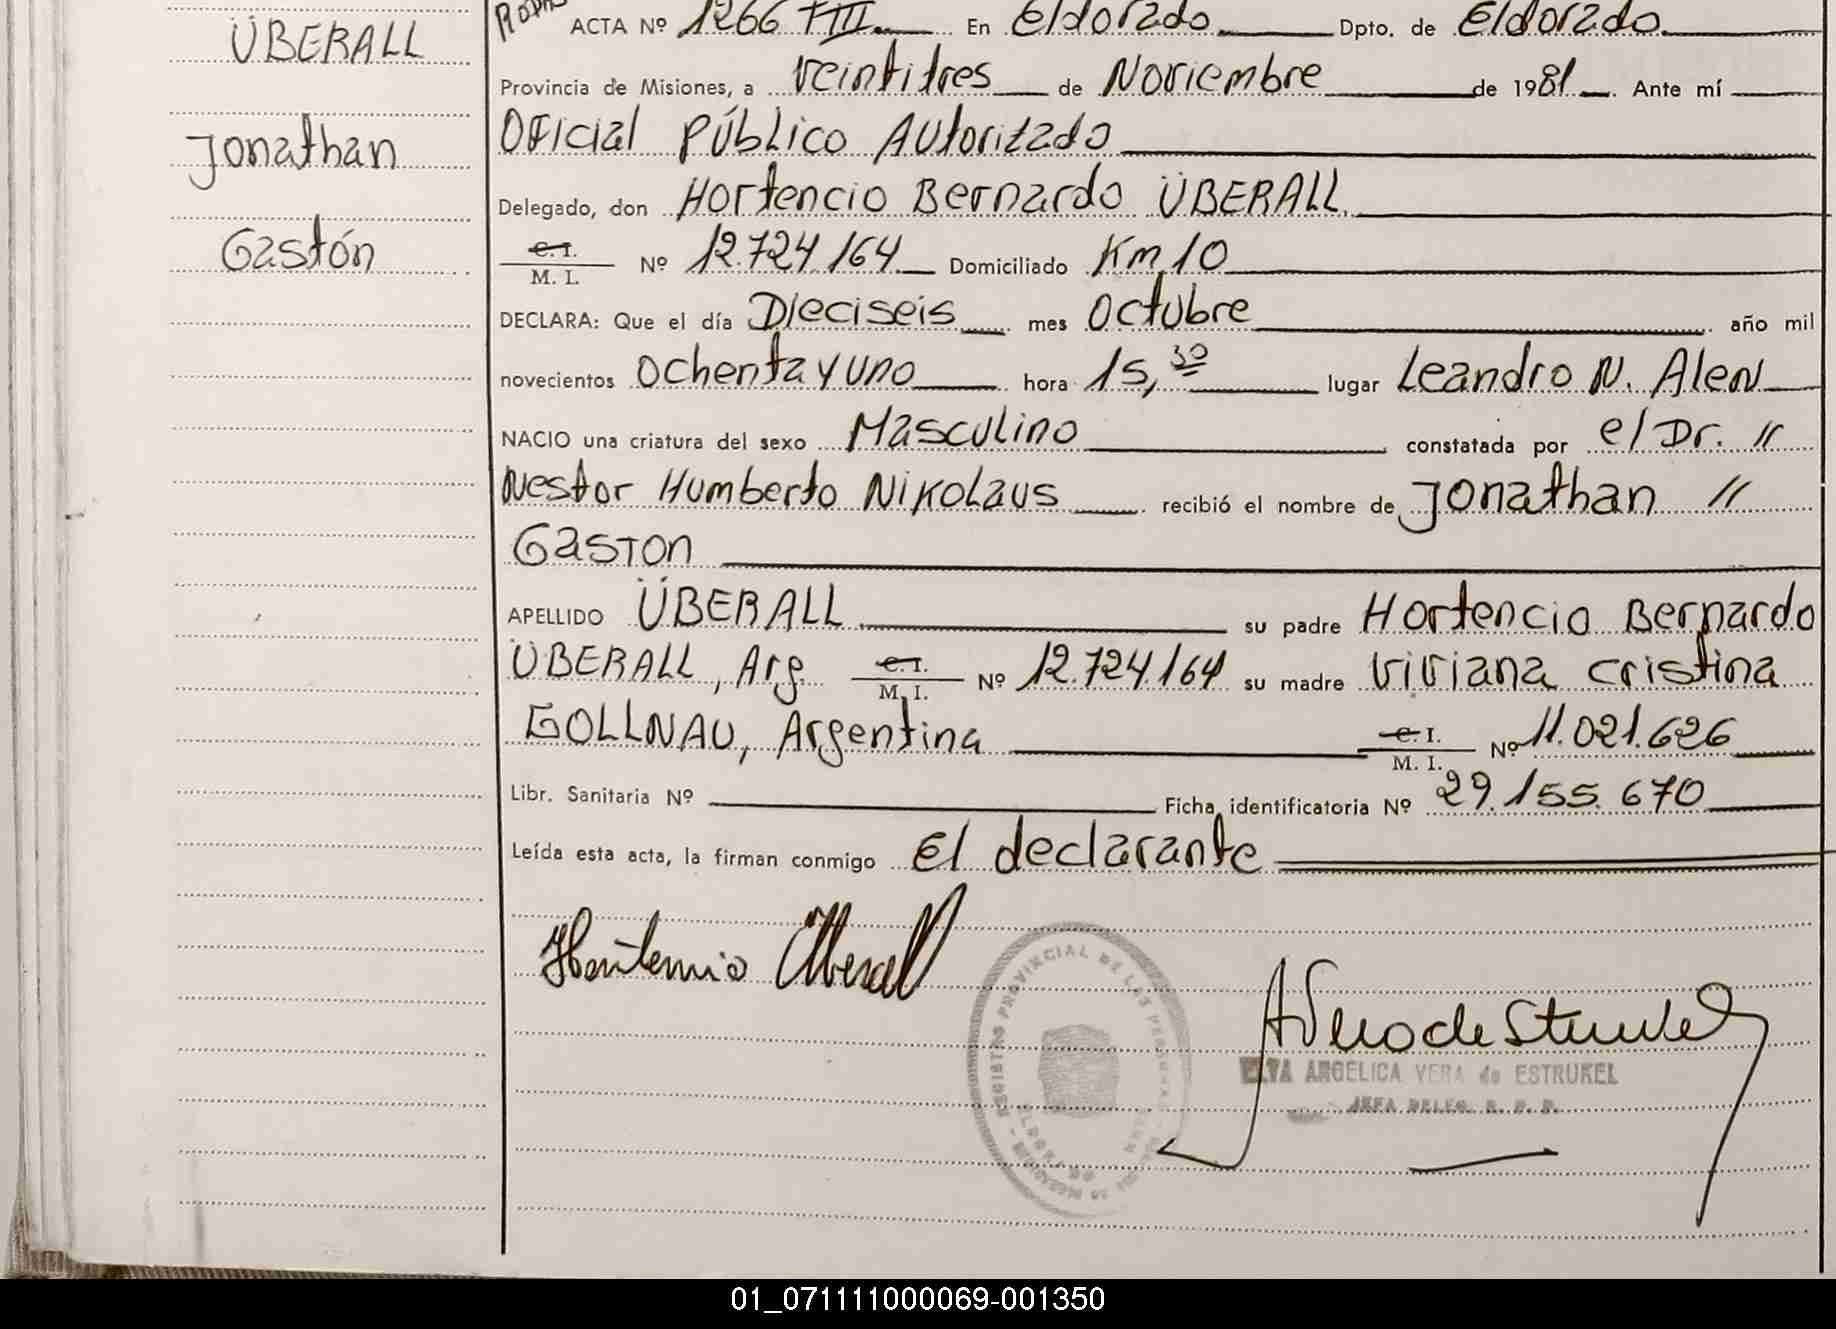 ÜBERALL
Jonathan
Gastón
ACTA Nº 1266 TIII En Eldorado Dpto. de Eldorado
Provincia de Misiones, a veintitres de Noviembre de 1981 Ante mí
Oficial Público Autorizado
Delegado, don Hortencio Bernardo ÜBERALL
C.I. M. I. Nº 12.724.164 Domiciliado Km 10
DECLARA: Que el día Dieciseis mes Octubre año mil
novecientos ochenta y uno hora 15,30 lugar Leandro N. Alen
NACIO una criatura del sexo Masculino constatada por el Dr. //
Nestor Humberto Nikolaus recibió el nombre de Jonathan //
Gaston
APELLIDO ÜBERALL su padre Hortencio Bernardo
ÜBERALL, Arg C.I. M. I. Nº 12.724.164 su madre Viviana Cristina
GOLLNAU, Argentina C.I. M. I. Nº 11.021.626
Libr. Sanitaria Nº Ficha identificatoria Nº 29.155.670
Leída esta acta, la firman conmigo El declarante
Hortencio Überall
REGISTRO PROVINCIAL DE LAS PERSONAS
ANGELICA VERA de ESTRUKEL
JEFA DELEG. R. P. P.
01_071111000069-001350